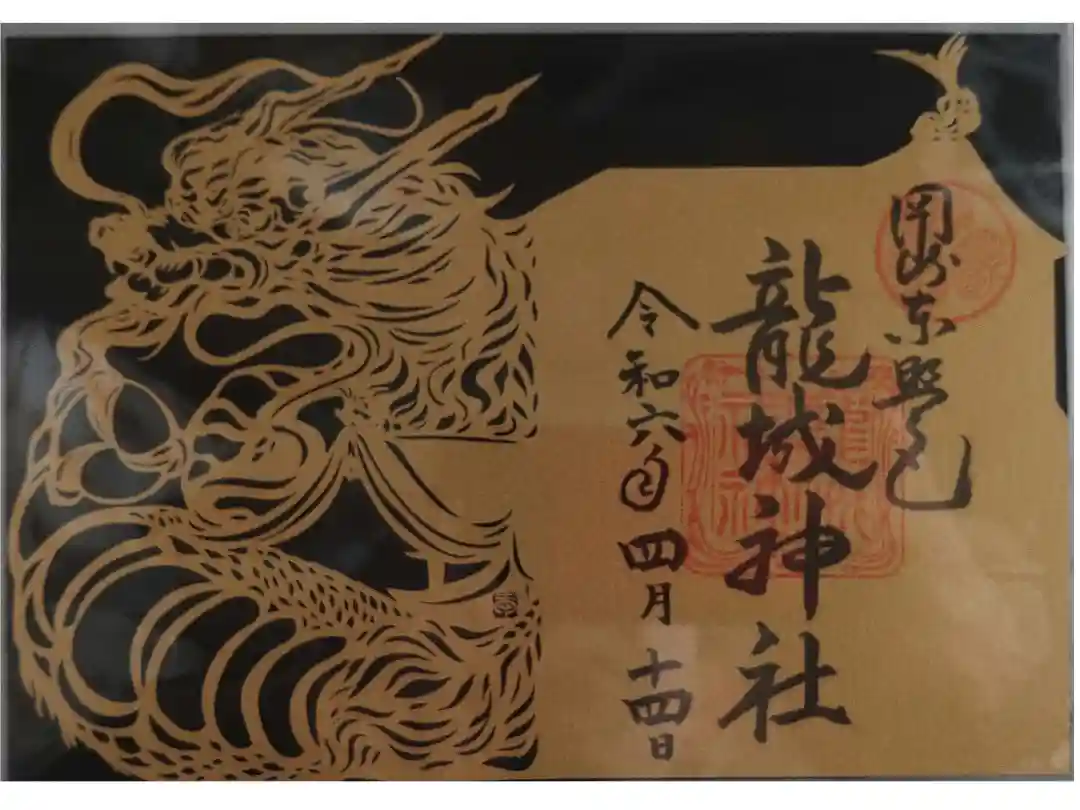 岡崎東照宮
龍城神社
令和六年四月十四日